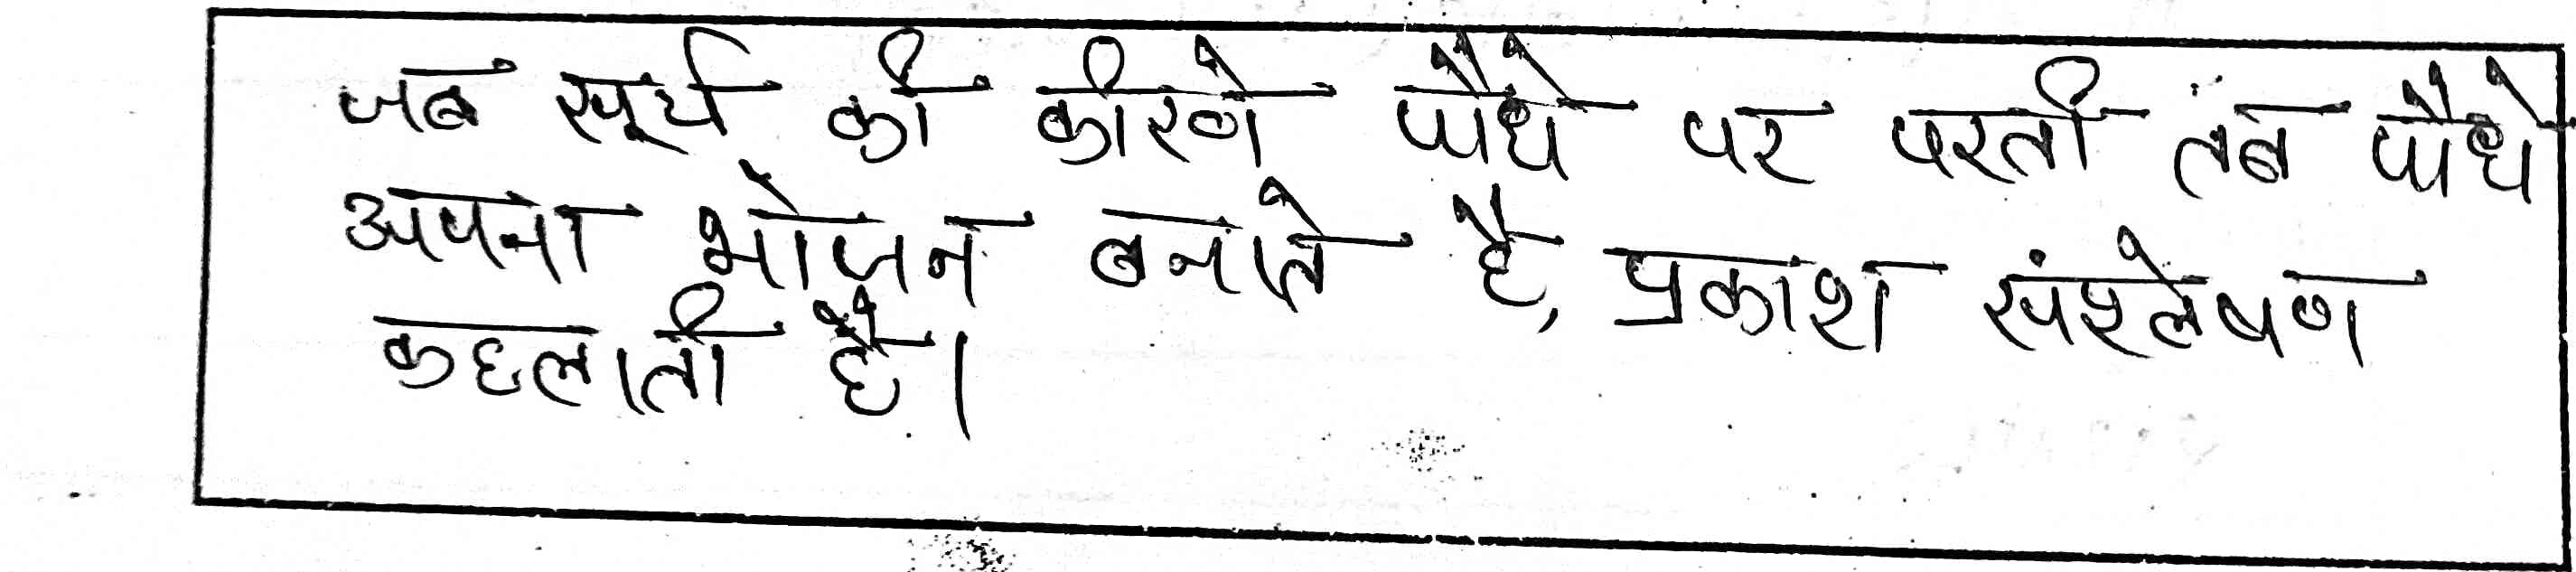 जब सूर्य की कीरणे पौधे पर परती तब पौधे
अपना भोजन बनाते है, प्रकाश संश्लेषण
कहलाती है।